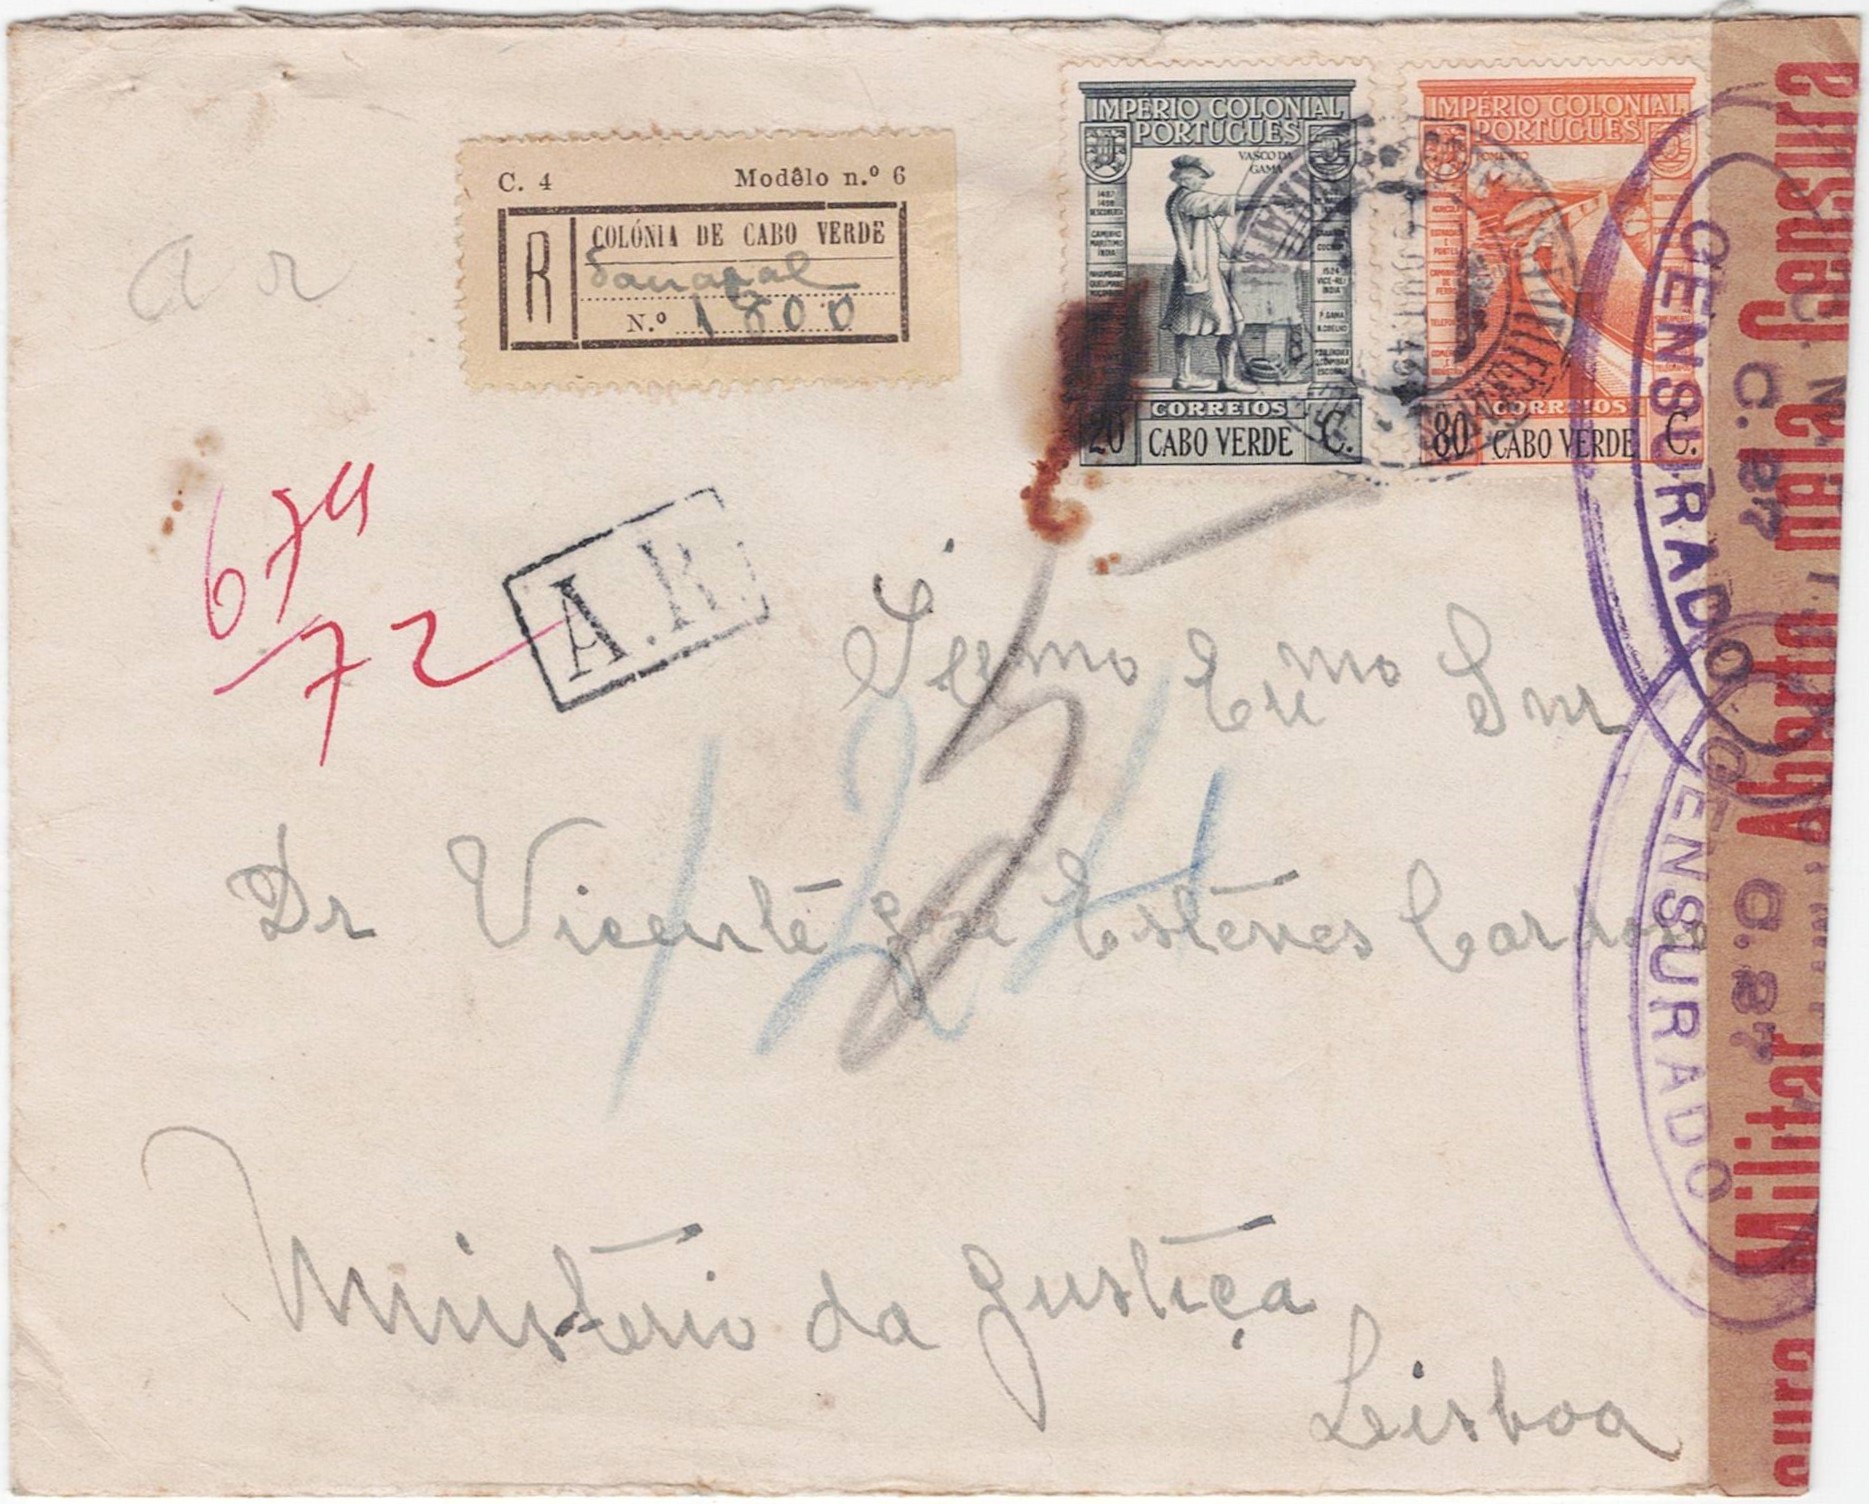 a r
C. 4 Modêlo n.º 6
R
COLÓNIA DE CABO VERDE
N.º 1800
IMPÉRIO COLONIAL
PORTUGUÊS
VASCO DA
GAMA
CORREIOS
20 CABO VERDE C.
IMPÉRIO COLONIAL
PORTUGUÊS
FOMENTO
CORREIOS
80 CABO VERDE C.
674
72
A.R.
Ilmo Exmo Snr
Dr Vicente José Esteves Cardoso
124
Ministerio da Justiça
Lisboa
CENSURADO
C. 87
CENSURADO
C. 87
Militar Aberto pela Censura
sura